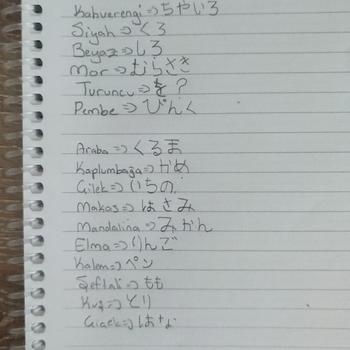 Kahverengi => ちやいろ
Siyah => くろ
Beyaz => しろ
Mor => むらさき
Turuncu => を?
Pembe => ぴんく
Araba => くるま
Kaplumbağa => かめ
Çilek => いちの
Makas => はさみ
Mandalina => みかん
Elma => りんご
Kalem => ペン
Şeftali => もも
Kuş => とり
Çiçek => はな